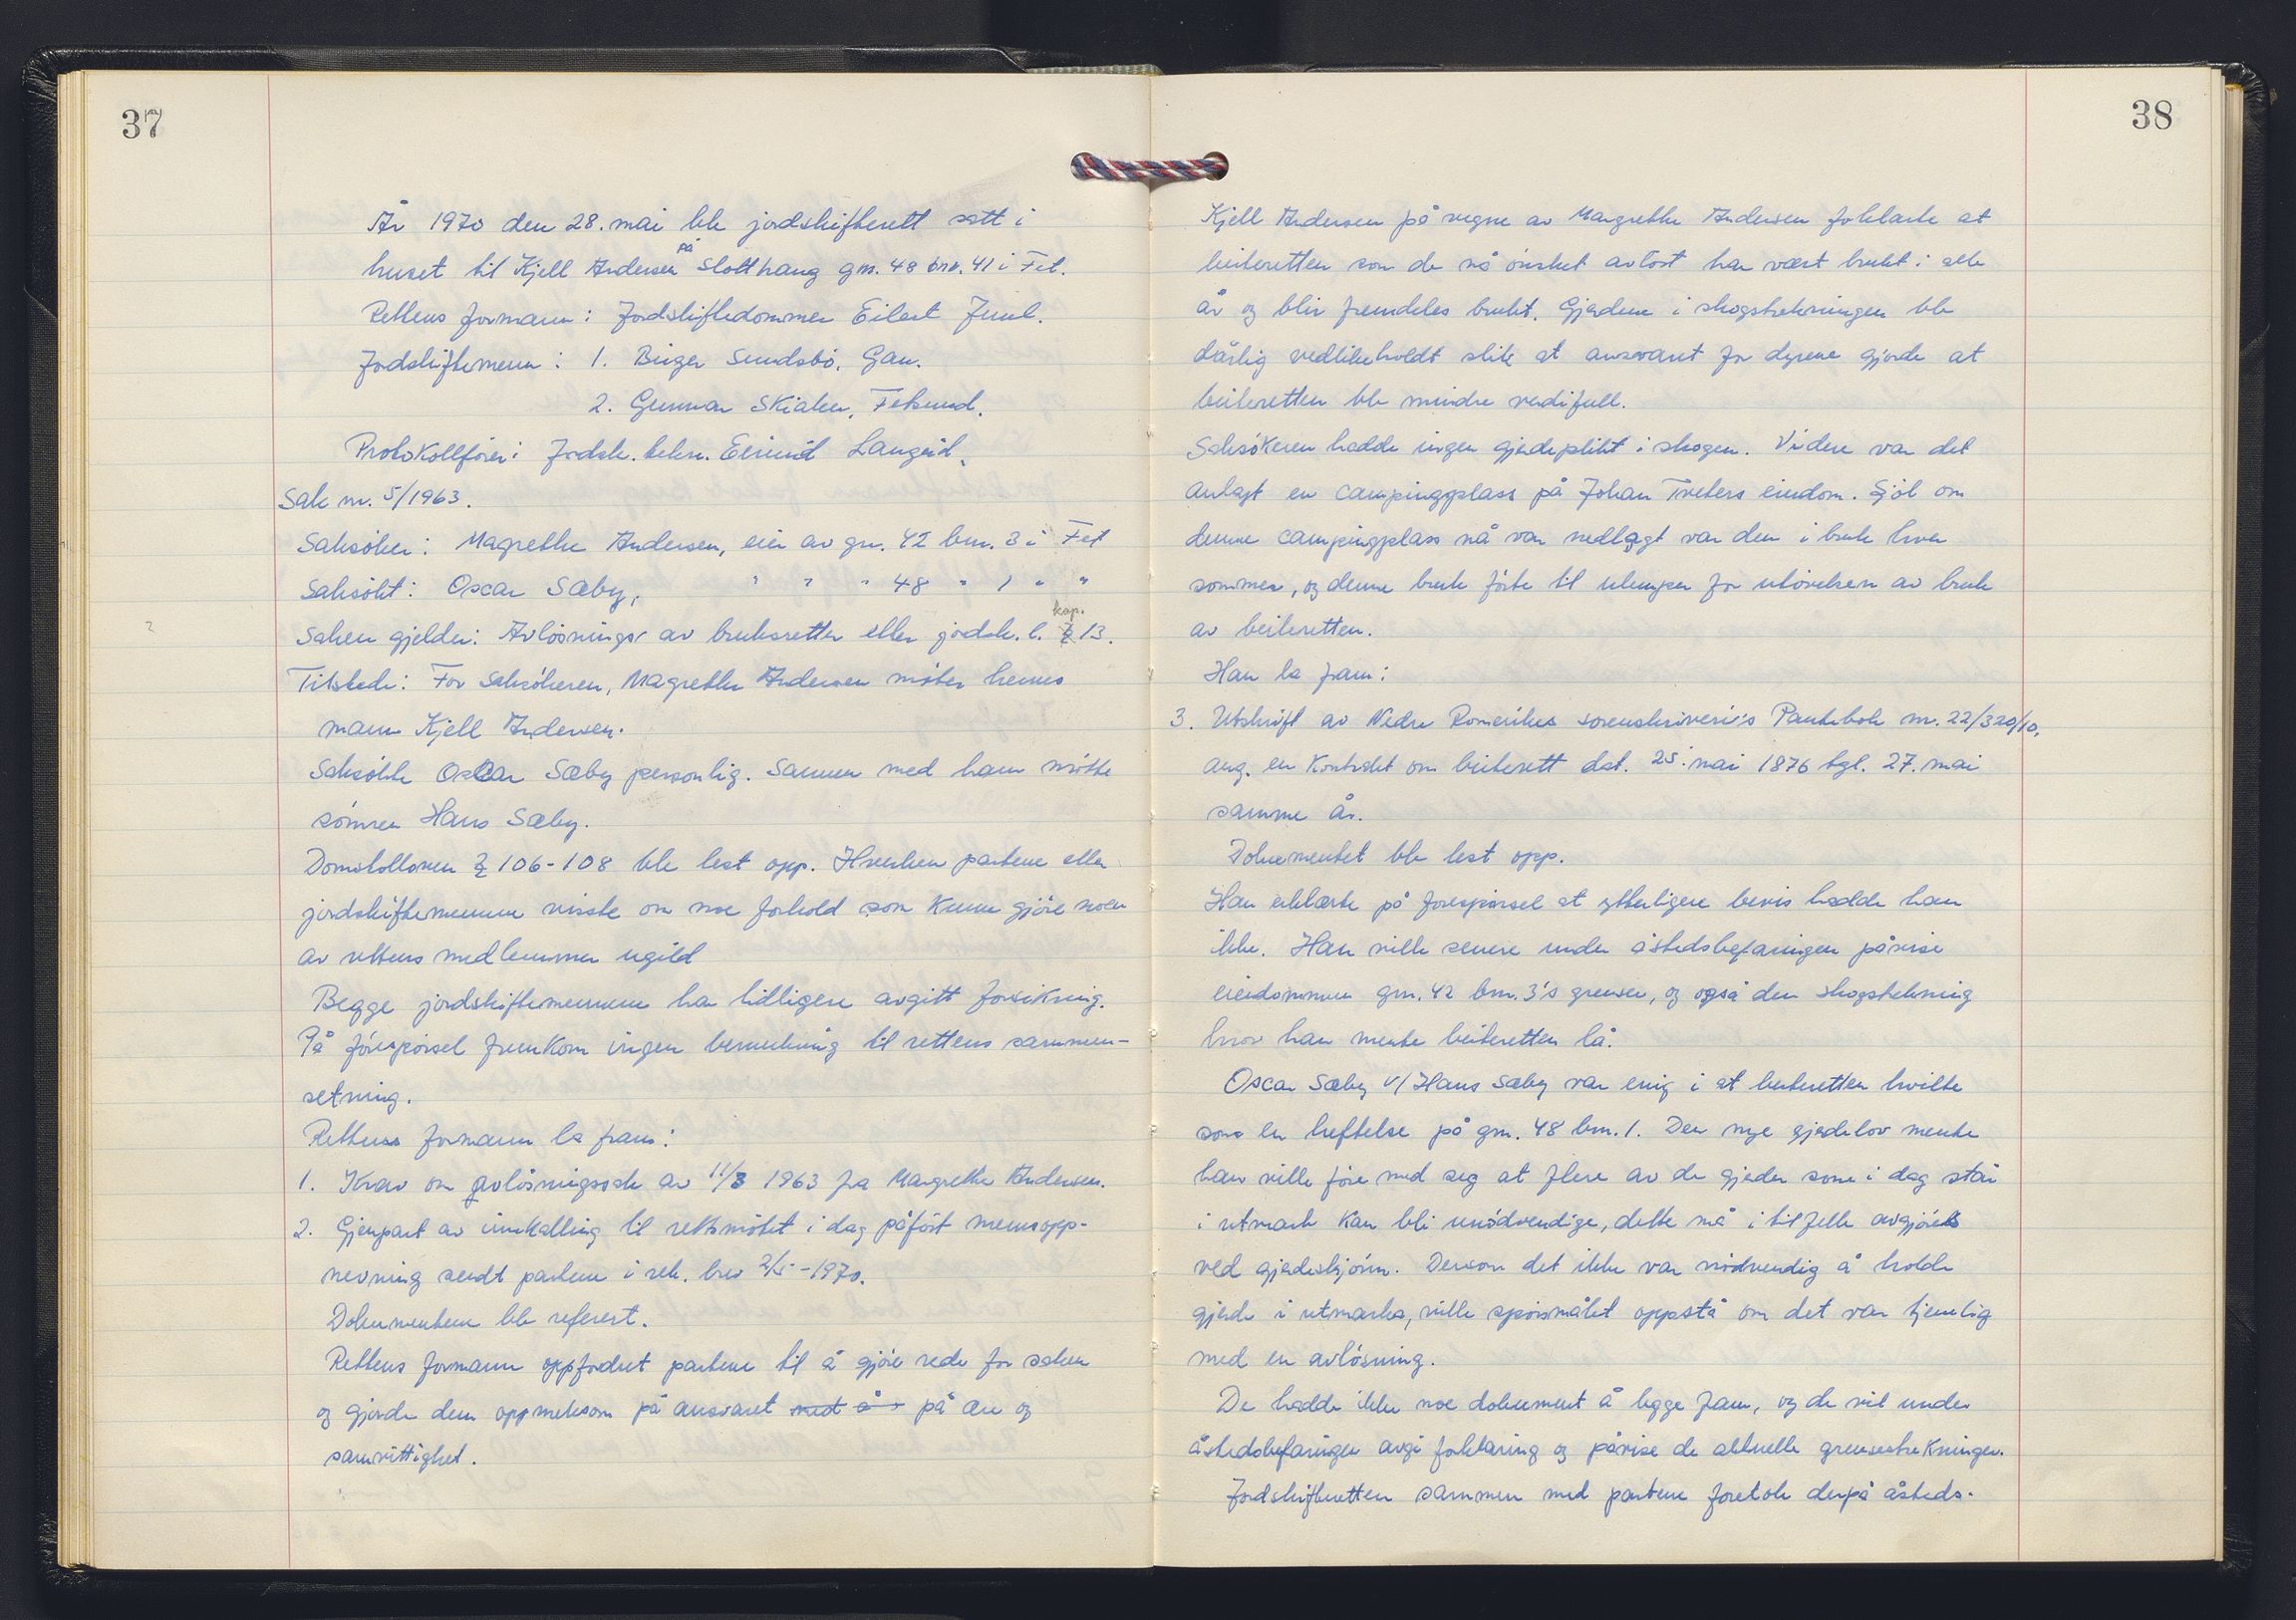 37
År 1970 den 28. mai ble jordskifterett satt i
huset til Kjell Andersen på Slotthaug gnr. 48 bnr. 41 i Fet.
Rettens formann: Jordskiftedommer Eilert Juul.
Jordskiftemenn: 1. Birger Sundsbö, Gan.
2. Gunnar Skiaker, Fetsund.
Protokollförer: Jordsk. tekn. Eivind Langeid.
Sak nr. 5/1963.
Saksöker: Magrethe Andersen, eier av gnr. 42 bnr. 3 i Fet
Saksökt: Oscar Sæby, " " " 48 " 1 " "
Saken gjelder: Avlösning av bruksretter etter jordsk. l. kap. § 13.
Tilstede: For saksökeren, Magrethe Andersen möter hennes
mann Kjell Andersen.
Saksökte Oscar Sæby personlig. Sammen med ham mötte
sönnen Hans Sæby.
Domstolloven § 106-108 ble lest opp. Hverken partene eller
jordskiftemennene visste om noe forhold som kunne gjöre noen
av rettens medlemmer ugild
Begge jordskiftemennene har tidligere avgitt forsikring.
På förespörsel fremkom ingen bemerkning til rettens sammen-
setning.
Rettens formann la fram:
1. Krav om avlösningssak av 11/3 1963 fra Margrethe Andersen.
2. Gjenpart av innkalling til rettsmötet i dag påfört mennsopp-
nevning sendt partene i rek. brev 2/5-1970.
Dokumentene ble referert.
Rettens formann oppfordret partene til å gjöre rede for saken
og gjorde dem oppmerksom på ansvaret med å på ære og
samvittighet.
38
Kjell Andersen på vegne av Margrethe Andersen forklarte at
beiteretten som de nå önsket avlöst har vært brukt i alle
år og blir fremdeles brukt. Gjerdene i skogstrekningen ble
dårlig vedlikeholdt slik at ansvaret for dyrene gjorde at
beiteretten ble mindre verdifull.
Saksökeren hadde ingen gjerdeplikt i skogen. Videre var det
anlagt en campingplass på Johan Tveters eiendom. Sjöl om
denne campingplass nå var nedlagt var den i bruk hver
sommer, og denne bruk förte til ulemper for utövelsen av bruk
av beiteretten.
Han la fram:
3. Utskrift av Nedre Romerikes sorenskriveri's Pantebok nr. 22/320/10,
ang. en kontrakt om beiterett dat. 25. mai 1876 tgl. 27. mai
samme år.
Dokumentet ble lest opp.
Han erklærte på forespörsel at ytterligere bevis hadde han
ikke. Han ville senere under åstedsbefaringen påvise
eiendommen gnr. 42 bnr. 3's grenser, og også den skogstrekning
hvor han mente beiteretten lå.
Oscar Sæby v/ Hans Sæby var enig i at beiteretten hvilte
som en heftelse på gnr. 48 bnr. 1. Den nye gjerdelov mente
han ville före med seg at flere av de gjerder som i dag står
i utmark kan bli unödvendige, dette må i tilfelle avgjöres
ved gjerdeskjönn. Dersom det ikke var nödvendig å holde
gjerde i utmarka, ville spörsmålet oppstå om det var tjenlig
med en avlösning.
De hadde ikke noe dokument å legge fram, og de vil under
åstedsbefaringen avgi forklaring og påvise de aktuelle grensestrekninger.
Jordskifteretten sammen med partene foretok derpå åsteds-